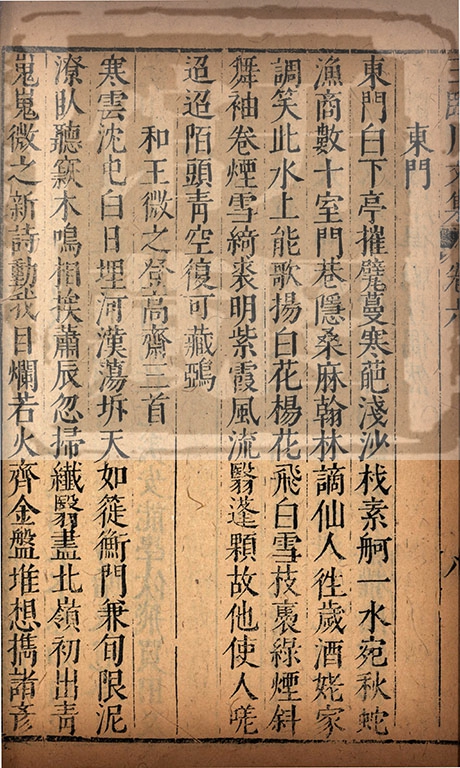 王臨川文集卷六
八
東門
東門白下亭摧甓蔓寒葩淺沙栈素舸一水宛秋蛇
漁商數十室門巷隱桑麻翰林謫仙人徃歲酒姥家
調笑此水上能歌揚白花楊花飛白雪枝裹綠煙斜
舞袖卷煙雪綺裘明紫霞風流翳蓬顆故他使人嗟
迢迢陌頭靑空復可藏鵶
和王微之登高齋三首
寒雲沈屯白日埋河漢蕩坼天如簁衡門兼旬限泥
潦臥聽窾木鳴相挨蕭辰忽掃纖翳盡北嶺初出靑
嵬嵬微之新詩動我目爛若火齊金盤堆想攜諸彥